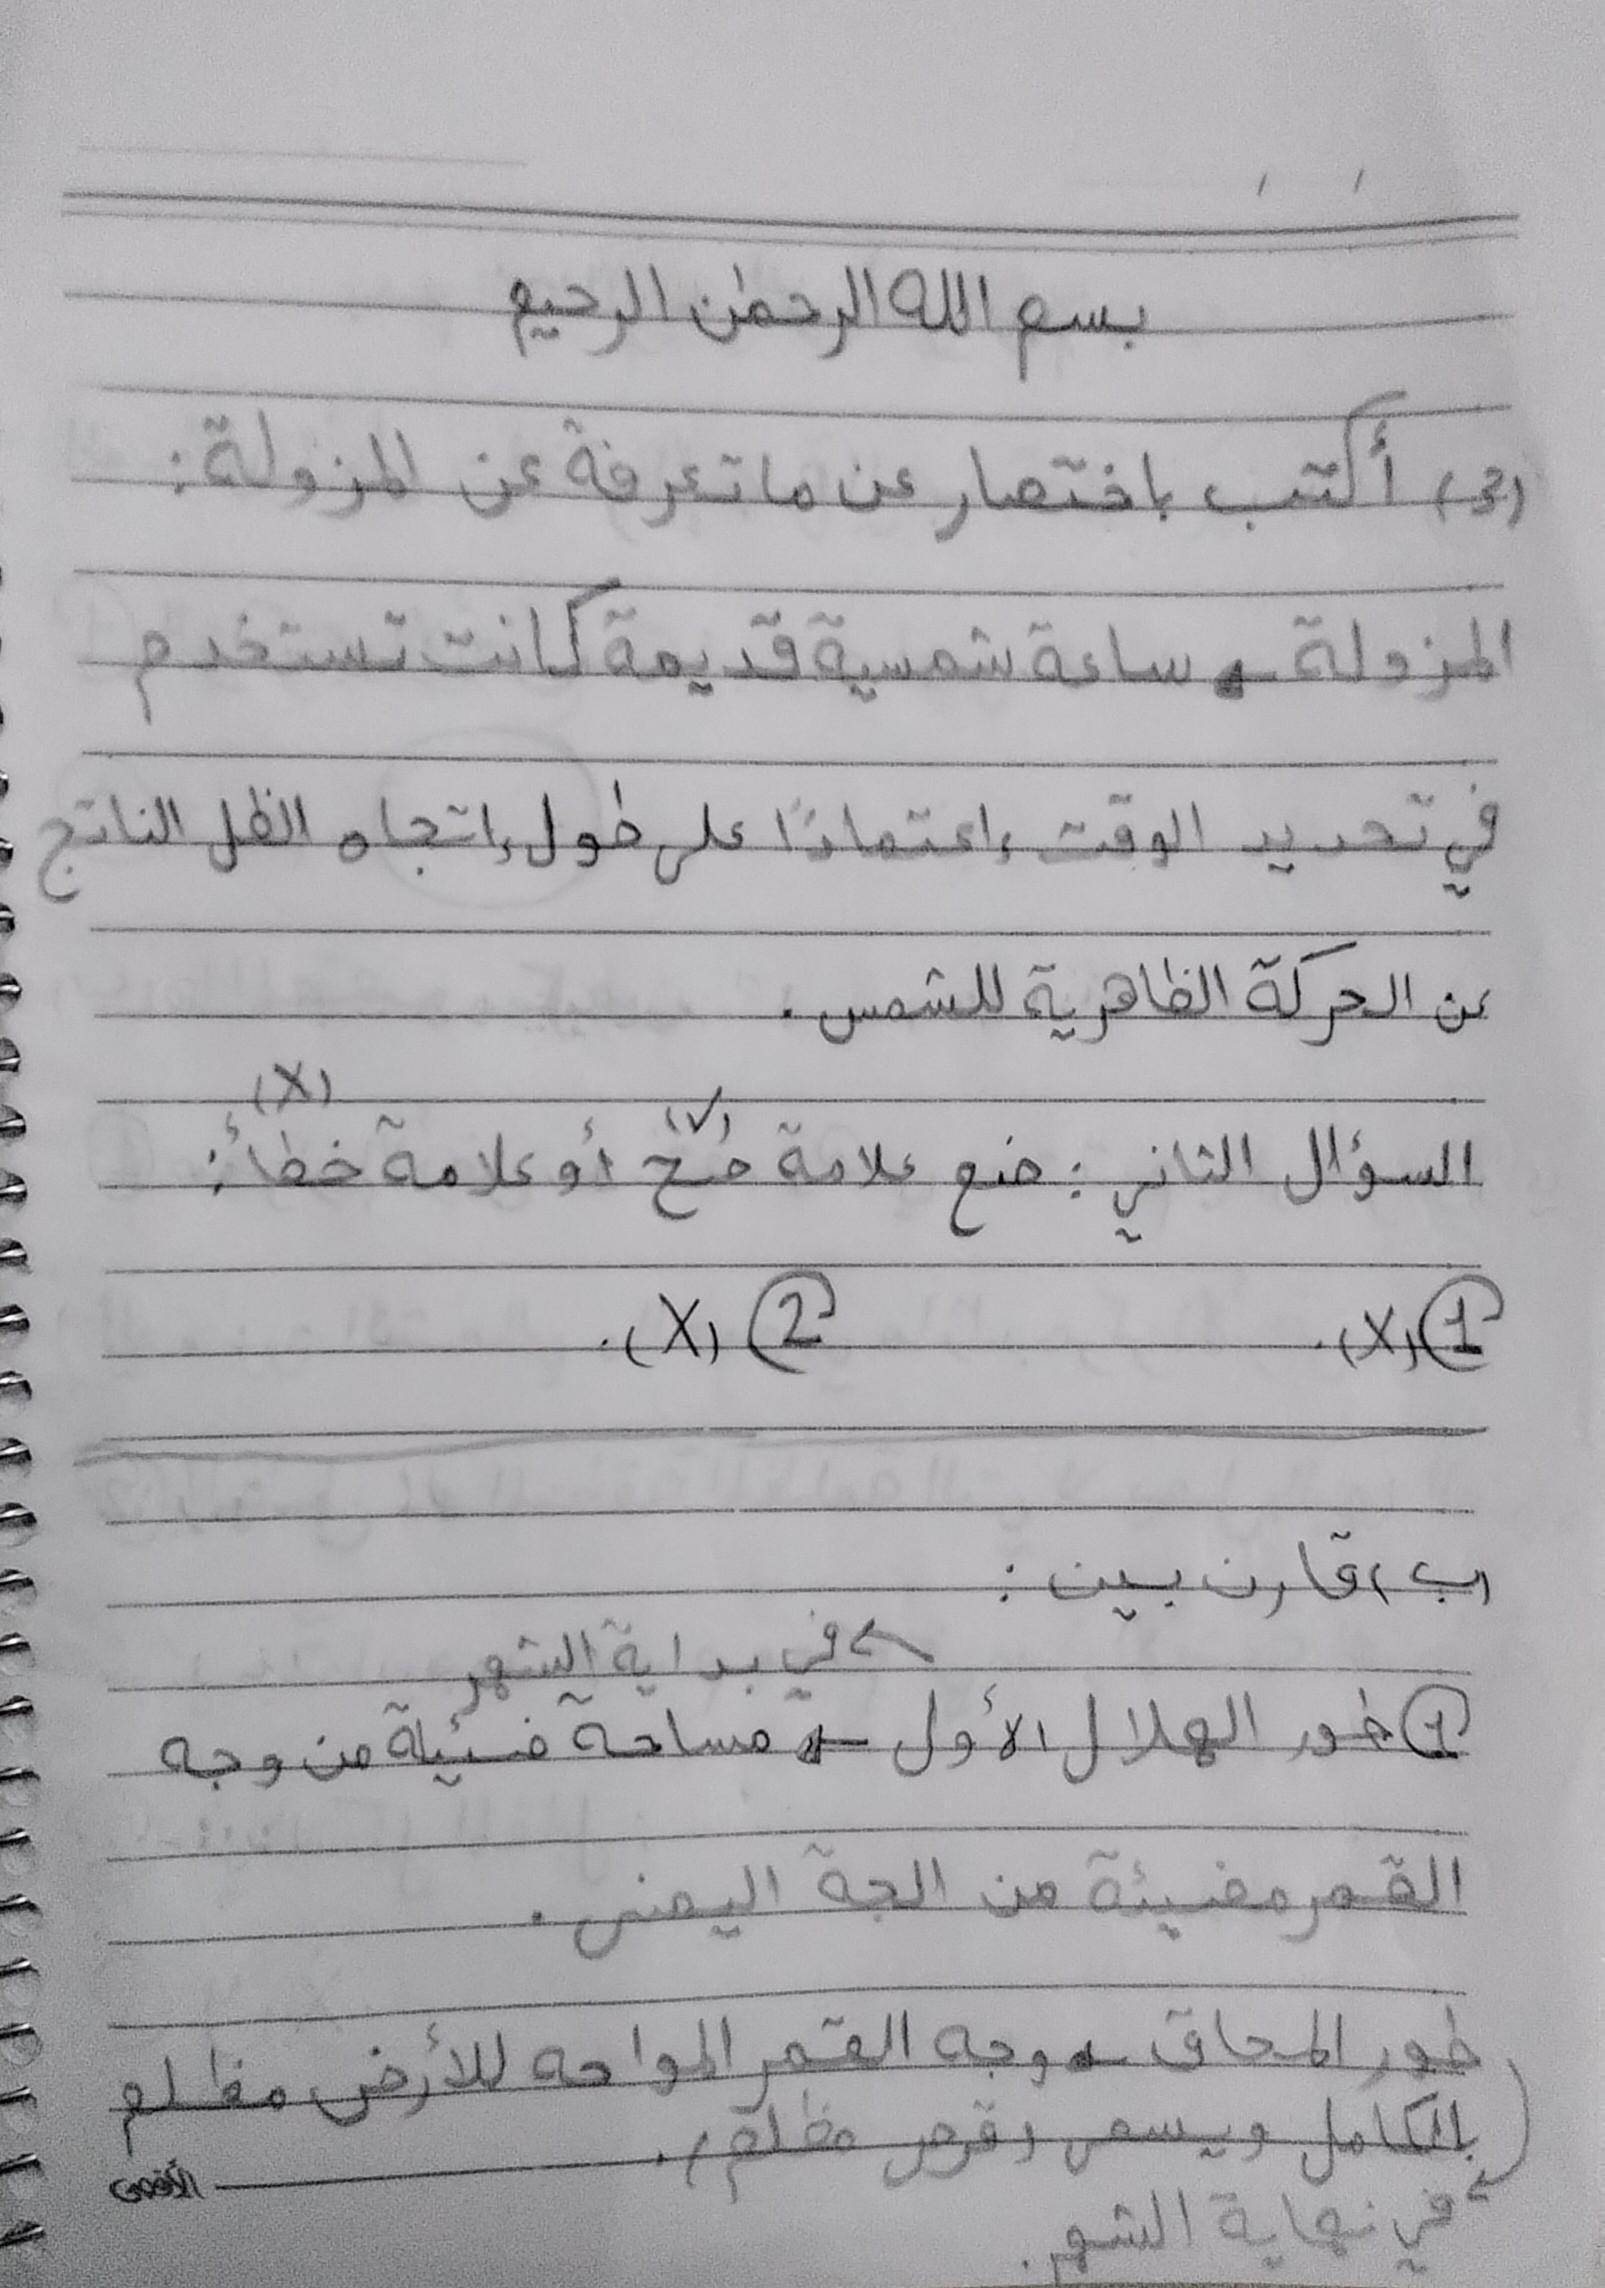 بسم الله الرحمٰن الرحيم
(3) أكتب باختصار عن ما تعرفة عن المزولة:
المزولة ← ساعة شمسية قديمة كانت تستخدم
في تحديد الوقت، اعتمادًا على طول، اتجاه الظل الناتج
عن الحركة الظاهرية للشمس.
(✓) (X)
السؤال الثاني: ضع علامة صح أو علامة خطأ:
1 (X). 2 (X).
(ب) قارن بين:
في بداية الشهر
1 طور الهلال الأول ← مساحة ضئيلة من وجه
القمر مضيئة من الجة اليمنى.
طور المحاق ← وجه القمر المواجه للأرض مظلم
بالكامل ويسمى (قرص مظلم).
الأقصى
في نهاية الشهر.